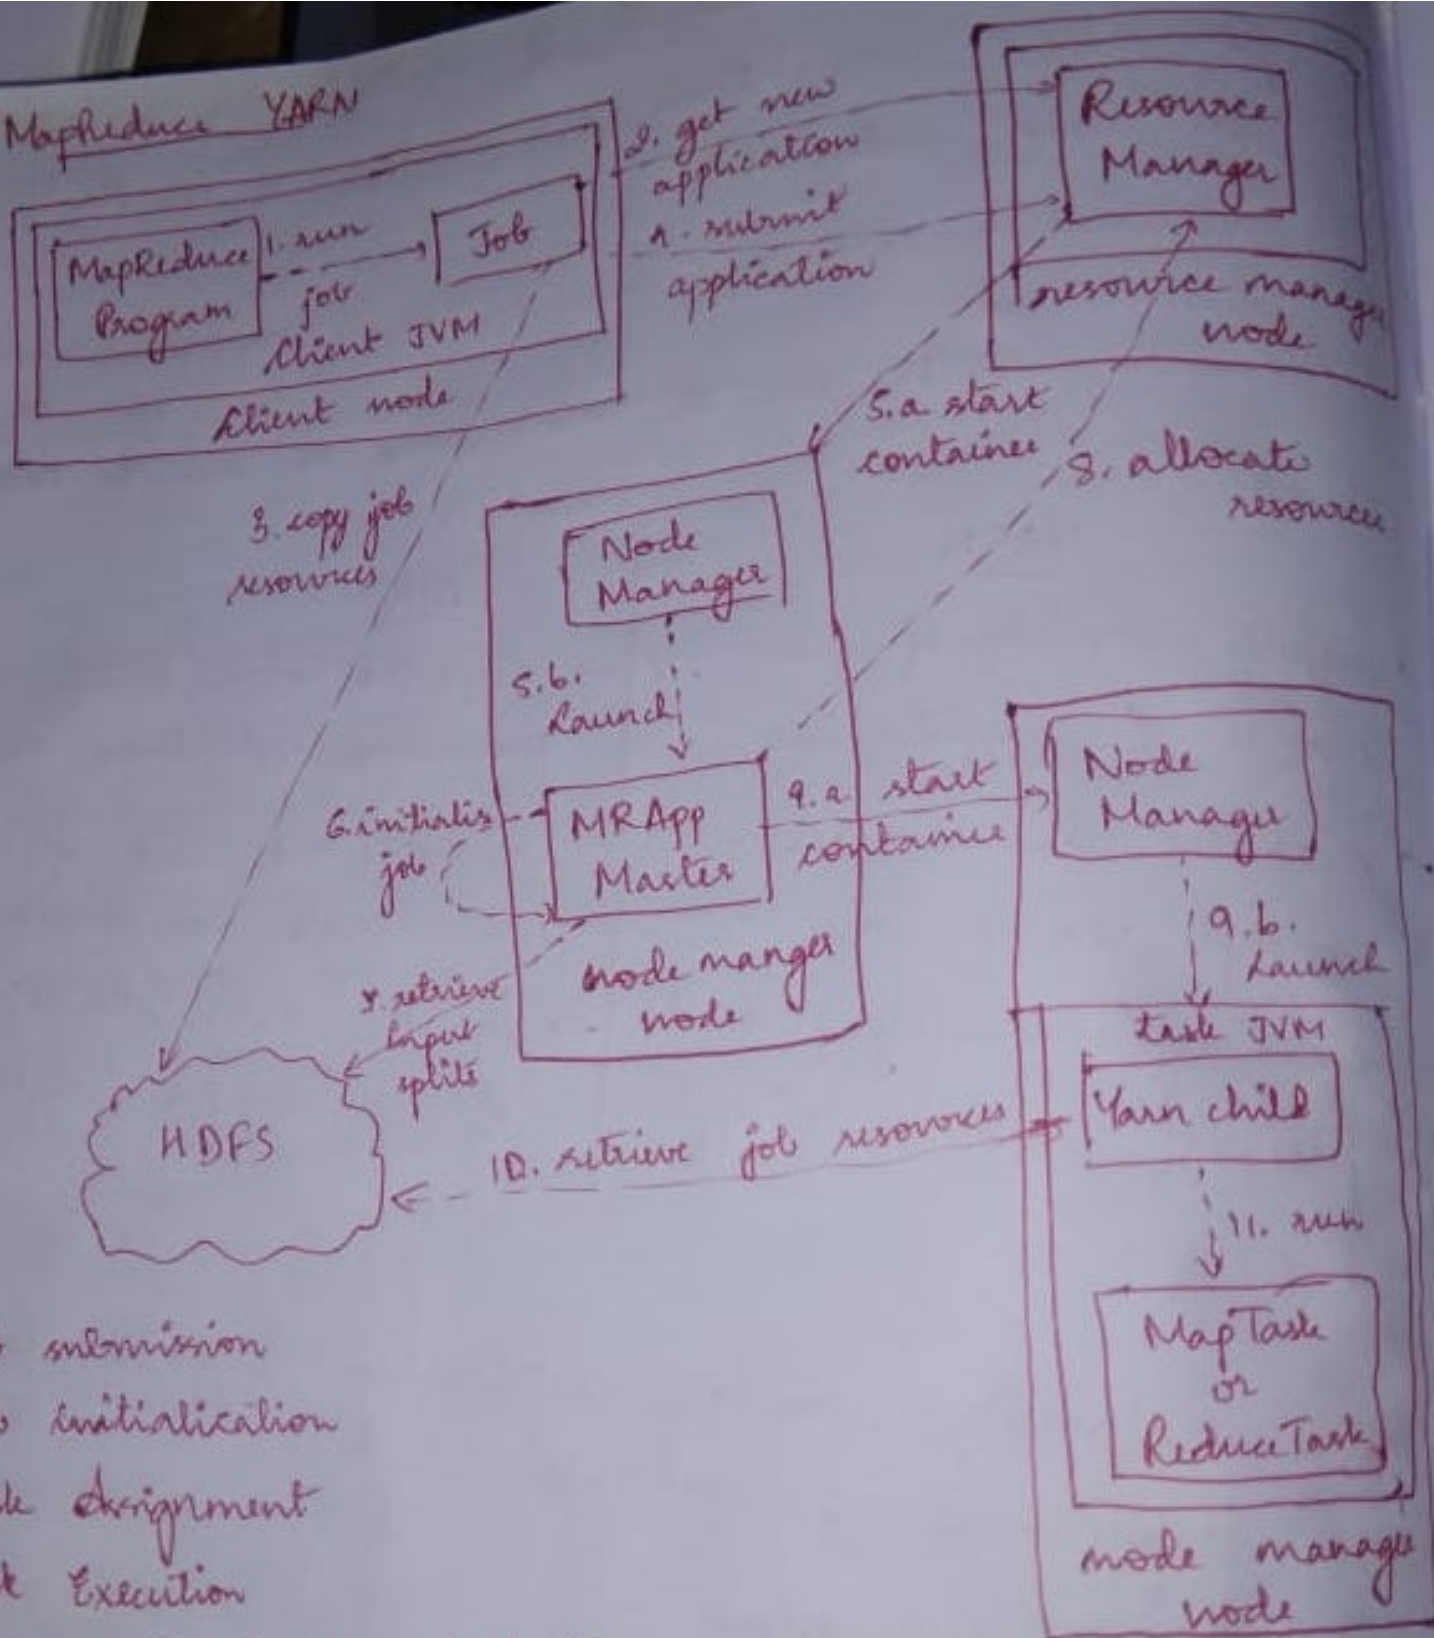 MapReduce YARN
MapReduce
Program
1. run
job
Job
Client JVM
Client node
2. get new
application
4. submit
application
Resource
Manager
resource manager
node
3. copy job
resources
5.a start
container
8. allocate
resources
Node
Manager
5.b.
Launch
6. initialis
job
MRApp
Master
9.a start
container
node manger
node
7. retrieve
Input
splits
HDFS
Node
Manager
9.b.
Launch
task JVM
Yarn child
10. retrieve job resources
11. run
MapTask
or
ReduceTask
node manager
node
submission
initialization
Assignment
Execution